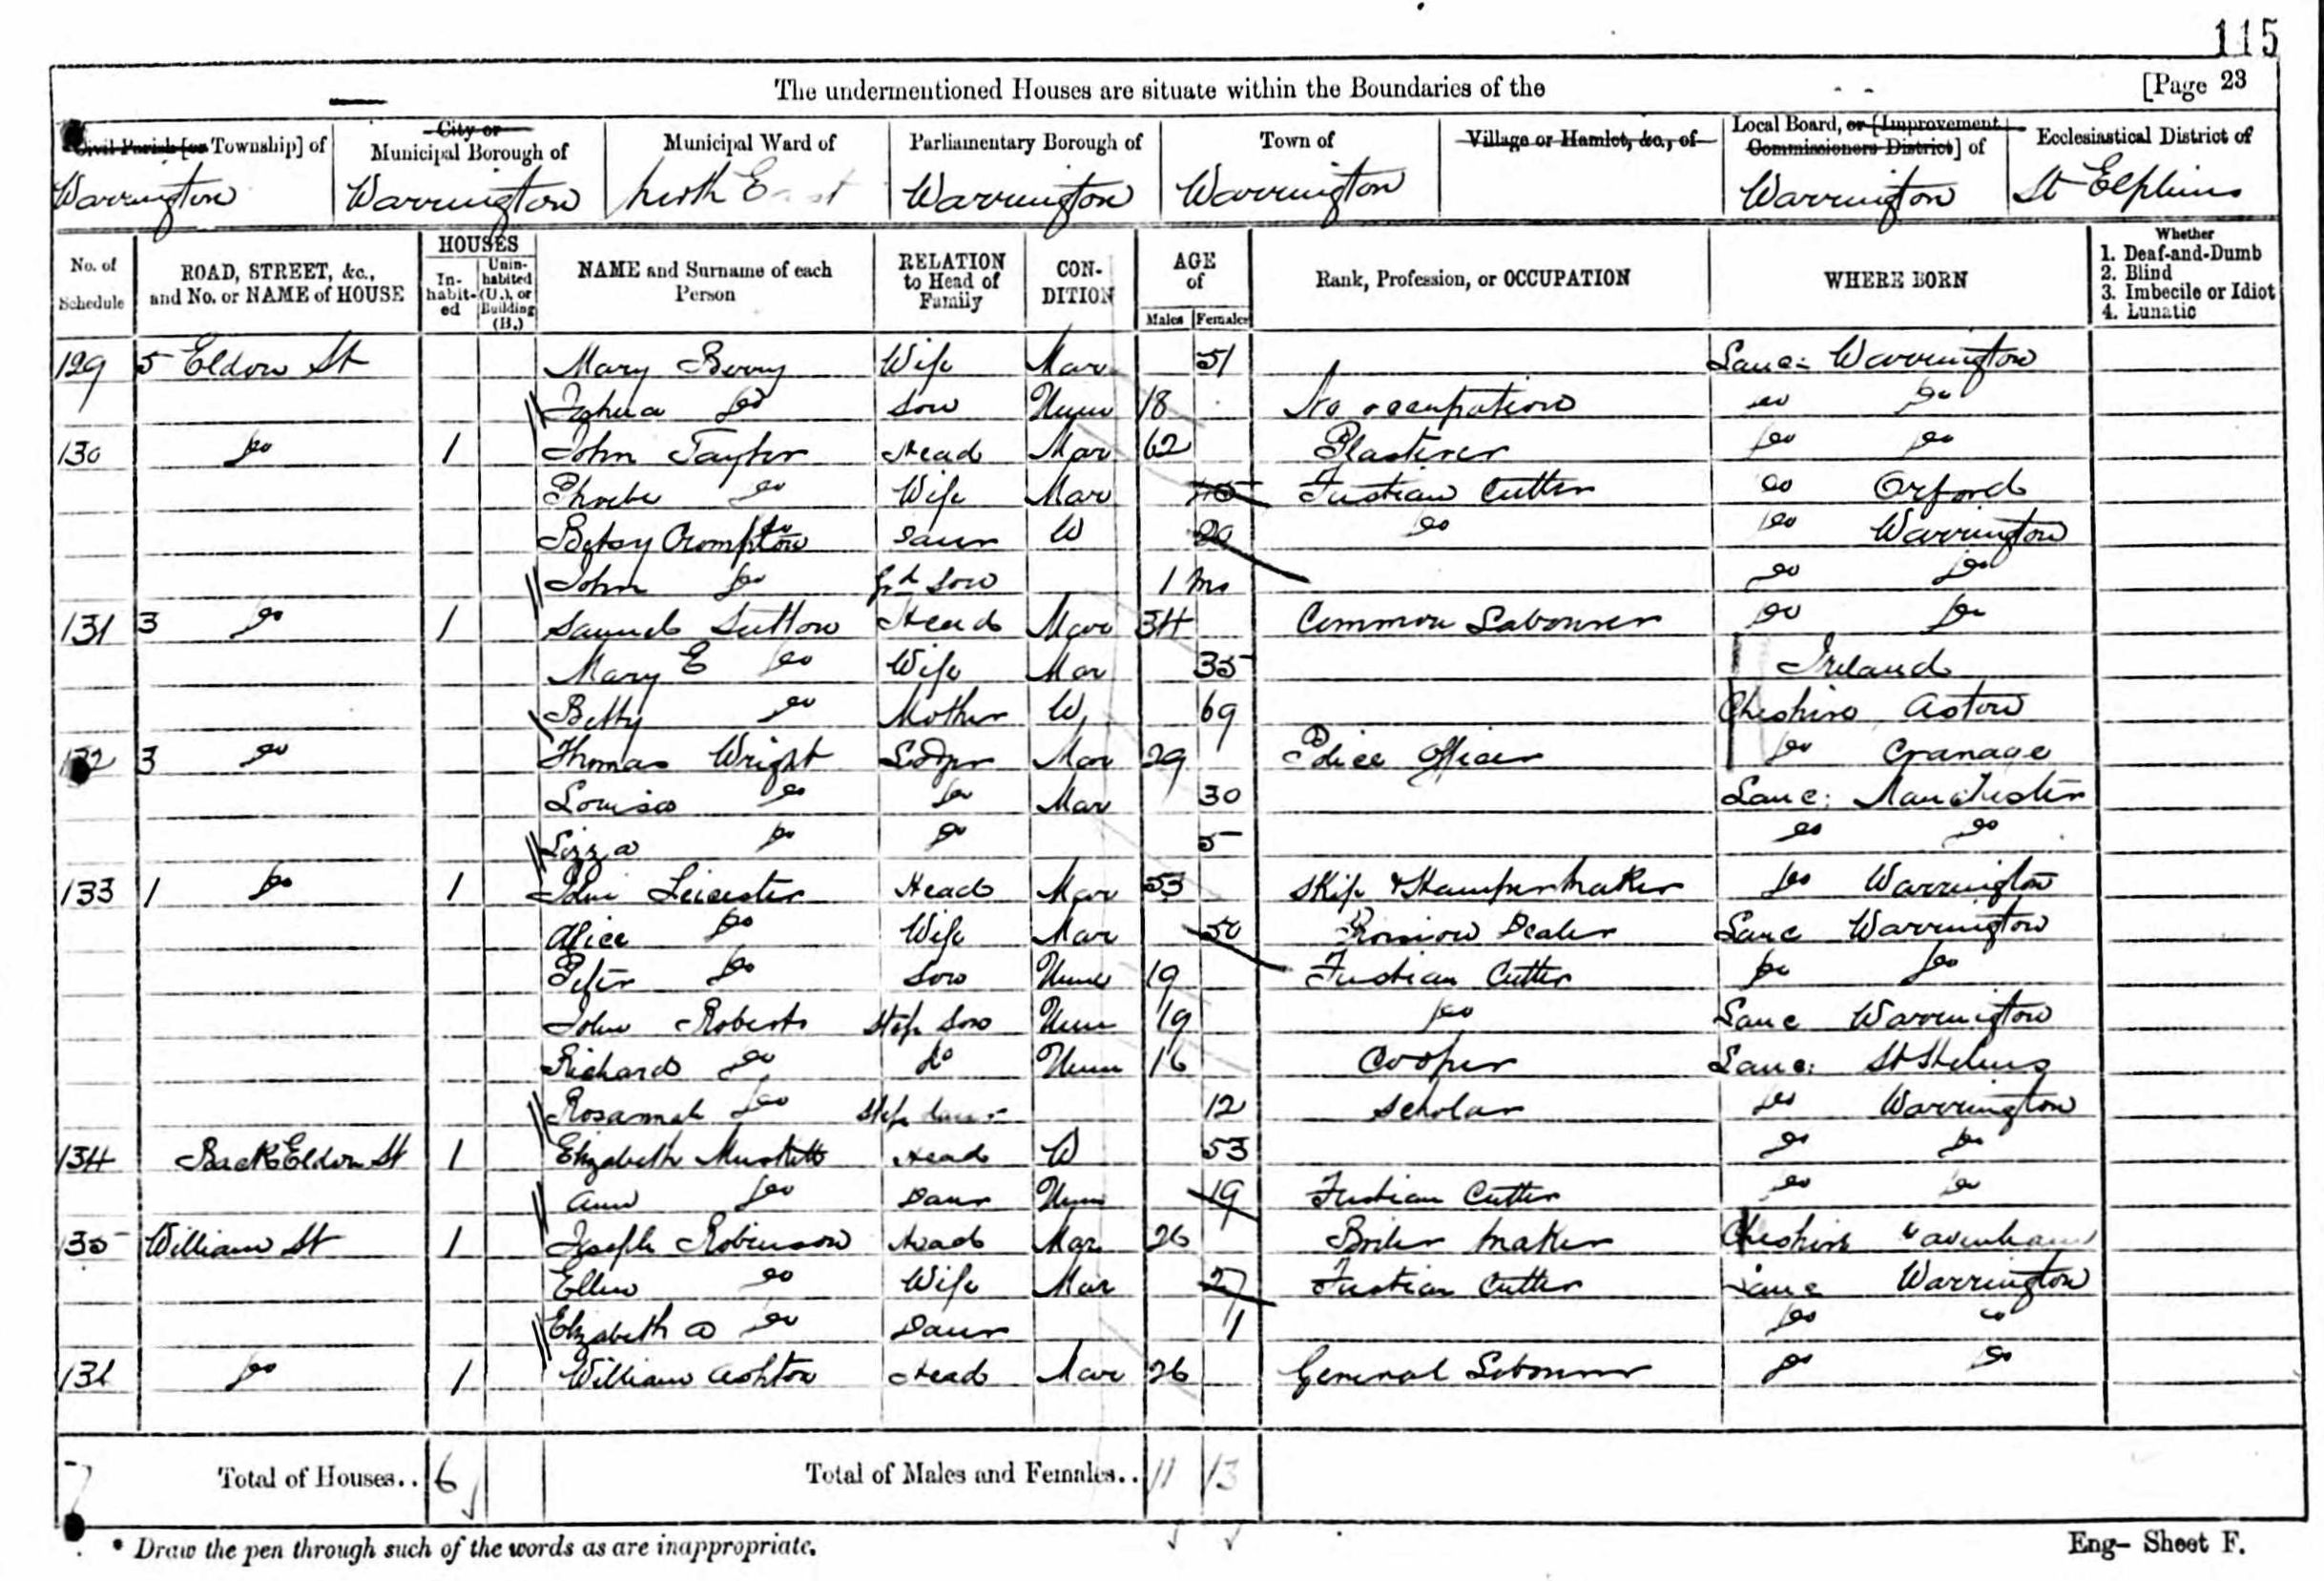 115
The undermentioned Houses are situate within the Boundaries of the [Page 23
Civil Parish [or Township] of City or Municipal Borough of Municipal Ward of Parliamentary Borough of Town of Village or Hamlet, &c., of Local Board, or [Improvement Commissioners District] of Ecclesiastical District of
Warrington Warrington North East Warrington Warrington Warrington St Elphins
No. of Schedule ROAD, STREET, &c., and No. or NAME of HOUSE HOUSES Inhabited Uninhabited (U.), or Building (B.) NAME and Surname of each Person RELATION to Head of Family CONDITION AGE of Males Females Rank, Profession, or OCCUPATION WHERE BORN Whether 1. Deaf-and-Dumb 2. Blind 3. Imbecile or Idiot 4. Lunatic
129 5 Eldon St Mary Berry Wife Mar 51 Lanc: Warrington
Joshua Do Son Unm 18 No occupation Do Do
130 Do 1 John Taylor Head Mar 62 Plasterer Do Do
Phoebe Do Wife Mar 45 Fustian Cutter Do Orford
Betsy Crompton Daur W 20 Do Do Warrington
John Do Gd Son 1 Mo Do Do
131 3 Do 1 Samuel Sutton Head Mar 34 Common Labourer Do Do
Mary E Do Wife Mar 35 Ireland
Betty Do Mother W 69 Cheshire Aston
132 3 Do Thomas Wright Lodger Mar 29 Police Officer Do Cranage
Louisa Do Do Mar 30 Lanc: Manchester
Lizza Do Do 5 Do Do
133 1 Do 1 John Leicester Head Mar 53 Skip & Hamper Maker Do Warrington
Alice Do Wife Mar 50 Dealer Lanc Warrington
Peter Do Son Unm 19 Fustian Cutter Do Do
John Roberts Step Son Unm 19 Do Lanc Warrington
Richard Do Do Unm 16 Cooper Lanc: St Helens
Rosannah Do Step daur 12 Scholar Do Warrington
134 Back Eldon St 1 Elizabeth Head W 53 Do Do
Ann Do Daur Unm 19 Fustian Cutter Do Do
135 William St 1 Joseph Robinson Head Mar 26 Boiler Maker Cheshire Davenham
Ellen Do Wife Mar 27 Fustian Cutter Lanc Warrington
Elizabeth A Do Daur 1 Do Do
136 Do 1 William Ashton Head Mar 26 General Labourer Do Do
7 Total of Houses.. 6 Total of Males and Females.. 11 13
* Draw the pen through such of the words as are inappropriate. Eng– Sheet F.